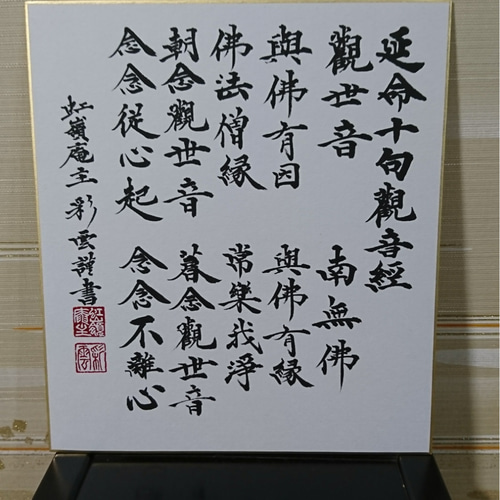 延命十句觀音經
觀世音 南無佛
與佛有因 與佛有縁
佛法僧縁 常樂我淨
朝念觀世音 暮念觀世音
念念從心起 念念不離心
虹嶺庵主彩雲謹書